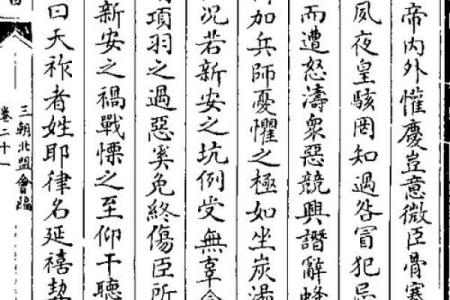 帝內外懽慶豈意微臣骨
夙夜皇駭罔知過咎冒犯忌
而遭怒濤衆惡競興譖辭蜂
加兵師憂懼之極如坐炭湯
況若新安之坑例受無辜
項羽之過惡奚免終傷臣所
新安之禍戰慄之至仰干聽
曰天祚者姓耶律名延禧契
三朝北盟會編
卷二十一